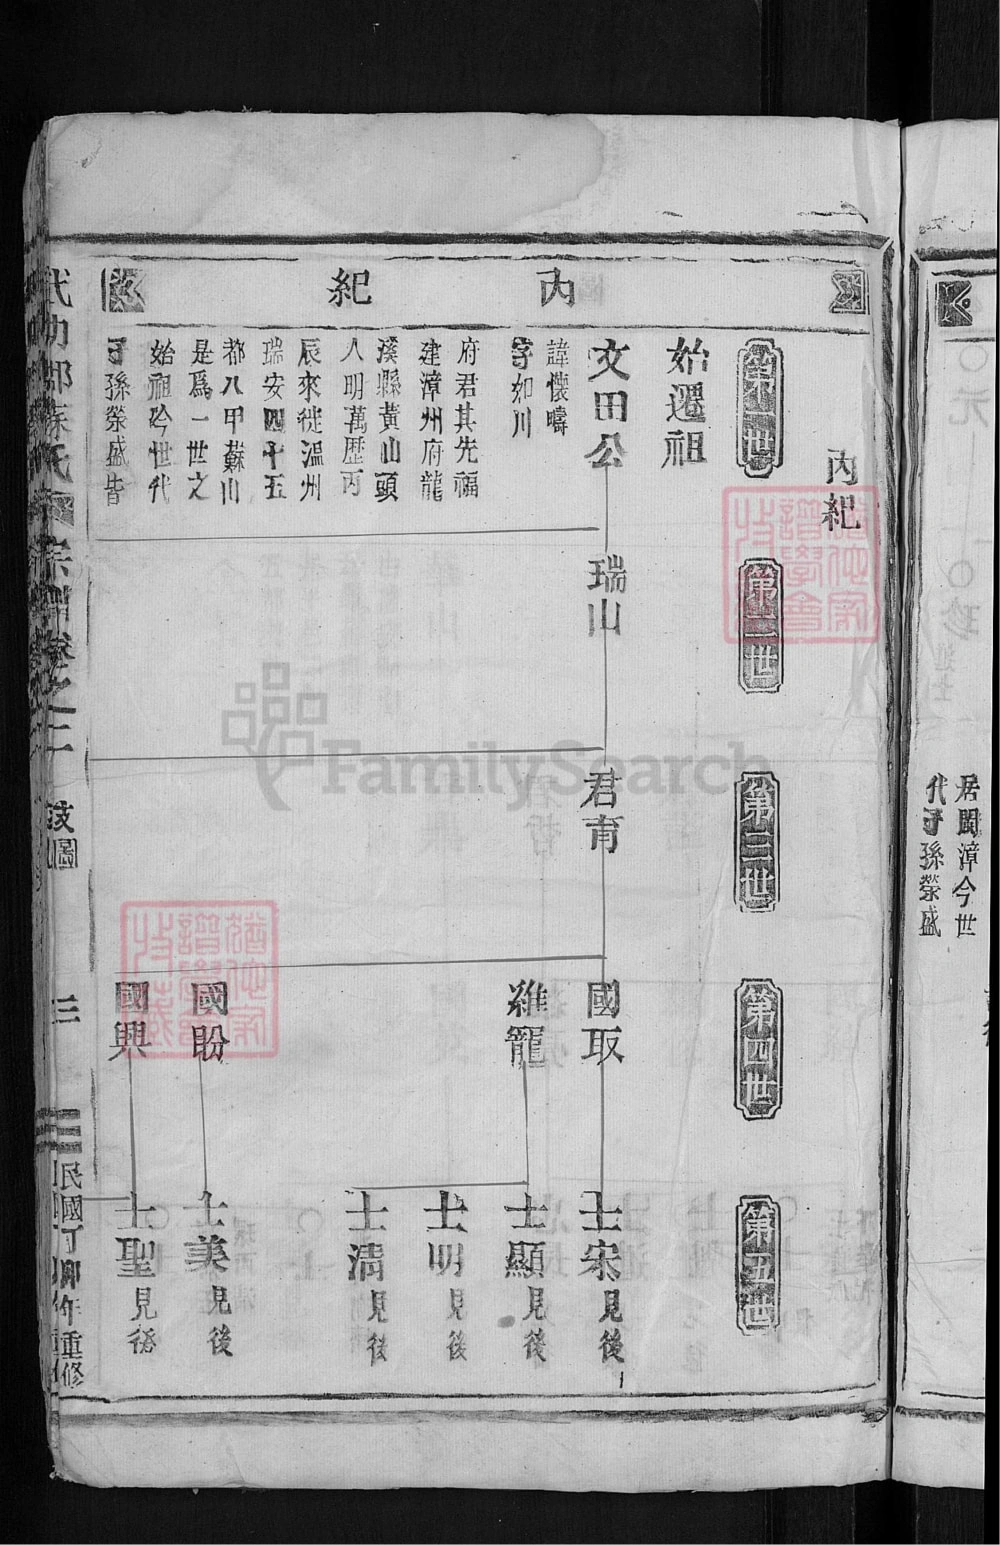 內紀
內紀
第一世
始遷祖
文田公
諱懷疇
字如川
府君其先福
建漳州府龍
溪縣黃山頭
人明萬歷丙
辰來徙溫州
瑞安四十五
都八甲蘇川
是爲一世之
始祖今世代
子孫榮盛皆
居閩漳今世
代子孫榮盛
第二世
瑞山
第三世
君育
第四世
國取
雞籠
國盼
國興
第五世
士宋見後
士顯見後
士明見後
士清見後
士美見後
士聖見後
武功郡蘇氏宗譜卷之二
三
民國丁卯年重修
FamilySearch